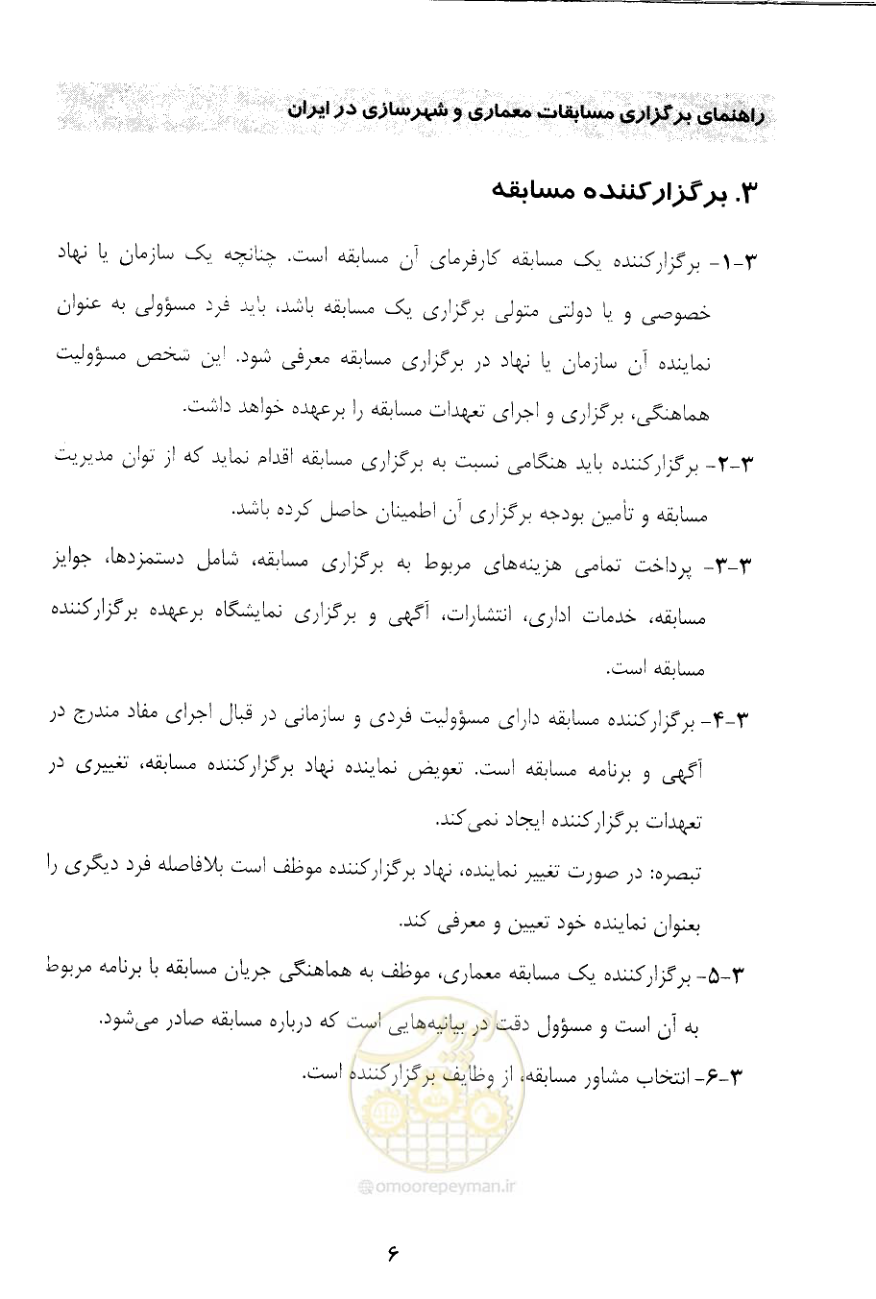 راهنمای برگزاری مسابقات معماری و شهرسازی در ایران
۳. برگزارکننده مسابقه
۳-۱- برگزارکننده یک مسابقه کارفرمای آن مسابقه است. چنانچه یک سازمان یا نهاد
خصوصی و یا دولتی متولی برگزاری یک مسابقه باشد، باید فرد مسؤولی به عنوان
نماینده آن سازمان یا نهاد در برگزاری مسابقه معرفی شود. این شخص مسؤولیت
هماهنگی، برگزاری و اجرای تعهدات مسابقه را برعهده خواهد داشت.
۳-۲- برگزارکننده باید هنگامی نسبت به برگزاری مسابقه اقدام نماید که از توان مدیریت
مسابقه و تأمین بودجه برگزاری آن اطمینان حاصل کرده باشد.
۳-۳- پرداخت تمامی هزینه‌های مربوط به برگزاری مسابقه، شامل دستمزدها، جوایز
مسابقه، خدمات اداری، انتشارات، آگهی و برگزاری نمایشگاه برعهده برگزارکننده
مسابقه است.
۳-۴- برگزارکننده مسابقه دارای مسؤولیت فردی و سازمانی در قبال اجرای مفاد مندرج در
آگهی و برنامه مسابقه است. تعویض نماینده نهاد برگزارکننده مسابقه، تغییری در
تعهدات برگزارکننده ایجاد نمی‌کند.
تبصره: در صورت تغییر نماینده، نهاد برگزارکننده موظف است بلافاصله فرد دیگری را
بعنوان نماینده خود تعیین و معرفی کند.
۳-۵- برگزارکننده یک مسابقه معماری، موظف به هماهنگی جریان مسابقه با برنامه مربوط
به آن است و مسؤول دقت در بیانیه‌هایی است که درباره مسابقه صادر می‌شود.
۳-۶- انتخاب مشاور مسابقه، از وظایف برگزارکننده است.
امور پیمان
@omoorepeyman.ir
۶